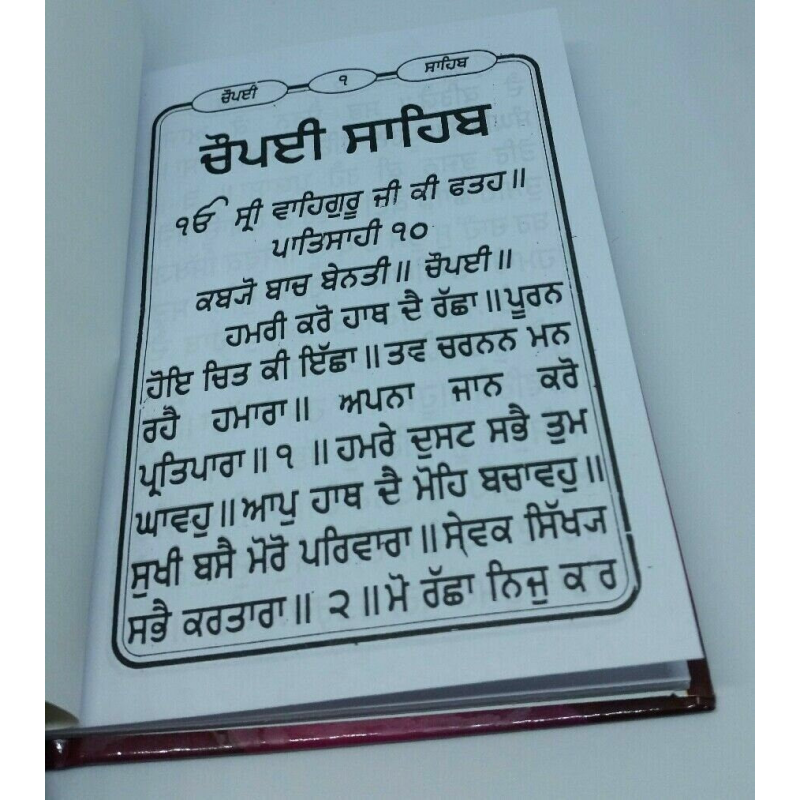 ਚੌਪਈ ੧ ਸਾਹਿਬ
ਚੌਪਈ ਸਾਹਿਬ
ੴ ਸ੍ਰੀ ਵਾਹਿਗੁਰੂ ਜੀ ਕੀ ਫਤਹ॥
ਪਾਤਿਸਾਹੀ ੧੦
ਕਬਯੋ ਬਾਚ ਬੇਨਤੀ॥ ਚੌਪਈ॥
ਹਮਰੀ ਕਰੋ ਹਾਥ ਦੈ ਰੱਛਾ॥ ਪੂਰਨ
ਹੋਇ ਚਿਤ ਕੀ ਇੱਛਾ॥ ਤਵ ਚਰਨਨ ਮਨ
ਰਹੈ ਹਮਾਰਾ॥ ਅਪਨਾ ਜਾਨ ਕਰੋ
ਪ੍ਰਤਿਪਾਰਾ॥੧॥ ਹਮਰੇ ਦੁਸਟ ਸਭੈ ਤੁਮ
ਘਾਵਹੁ॥ ਆਪੁ ਹਾਥ ਦੈ ਮੋਹਿ ਬਚਾਵਹੁ॥
ਸੁਖੀ ਬਸੈ ਮੋਰੋ ਪਰਿਵਾਰਾ॥ ਸੇਵਕ ਸਿੱਖ੍ਯ
ਸਭੈ ਕਰਤਾਰਾ॥੨॥ ਮੋ ਰੱਛਾ ਨਿਜੁ ਕਰ